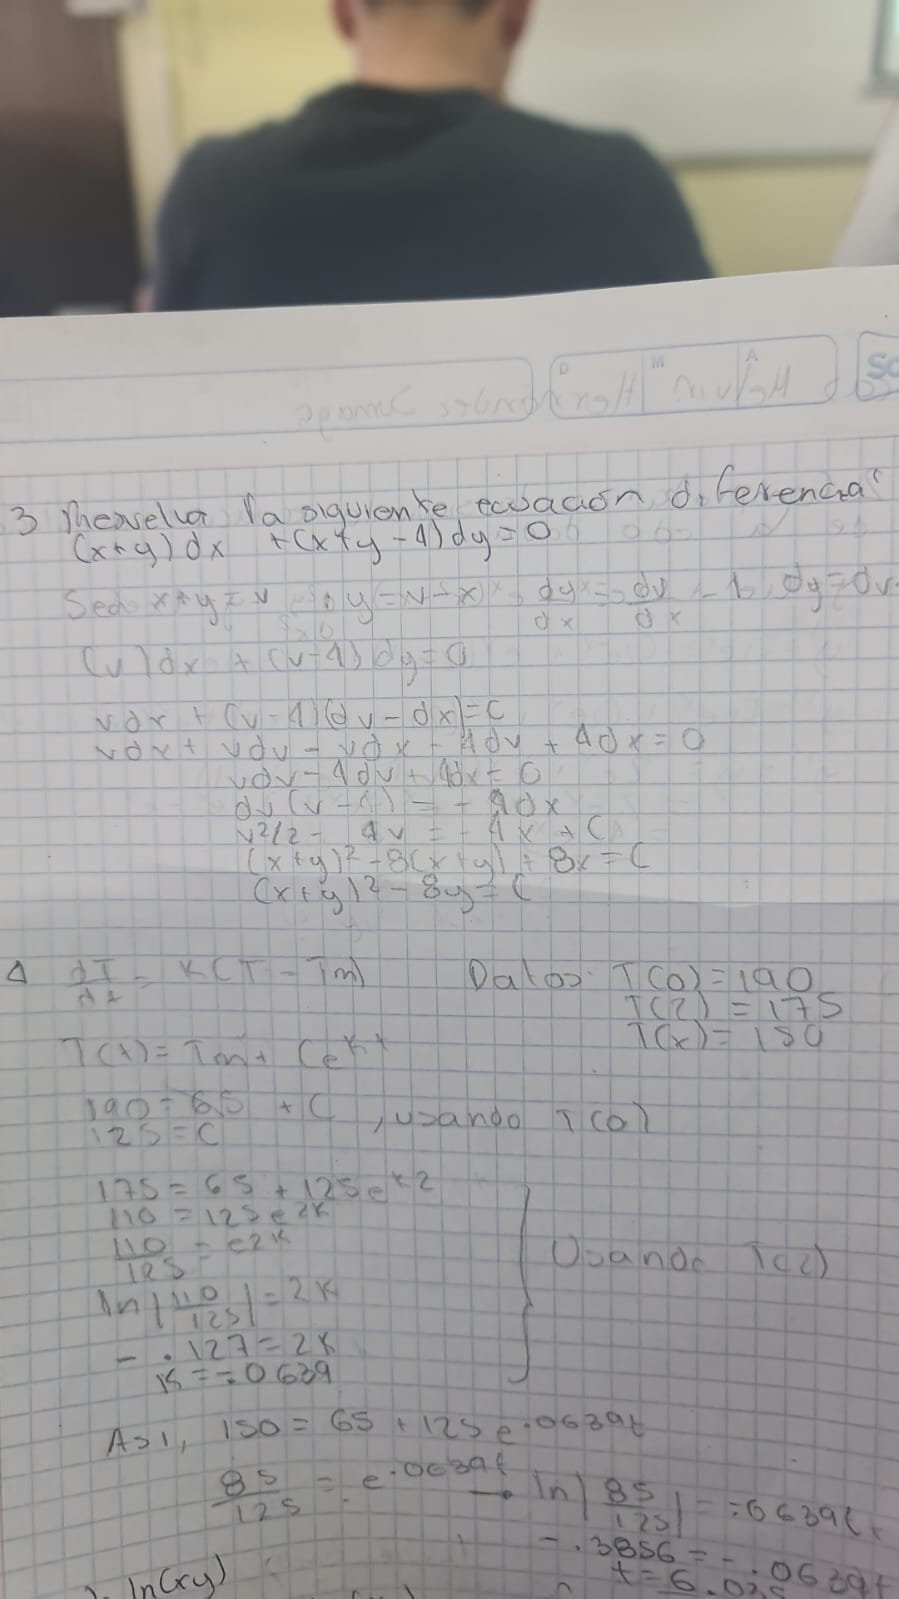 3 Resuelva la siguiente ecuación diferencial
(x+y)dx +(x+y-4)dy=0
Sea x+y=v y=v-x dy/dx = dv/dx - 1, dy=dv-
(v)dx + (v-4)dy=0
vdx + (v-4)(dv-dx)=0
vdx + vdv - vdx - 4dv + 4dx = 0
vdv - 4dv + 4dx = 0
dv(v-4) = -4dx
v²/2 - 4v = -4x + C
(x+y)²-8(x+y) + 8x = C
(x+y)²-8y=C
4 dT/dt = K(T-Tm) Datos: T(0)=190
T(2)=175
T(x)=150
T(t)=Tm+ Ce^kt
190=65 +C , usando T(0)
125=C
175=65+125e^k2
110=125e^2k
110/125 = e^2k
Usando T(2)
ln|110/125|=2K
-.127=2K
K=-.0639
Así, 150=65+125e^.0639t
85/125 = e^.0639t → ln|85/125| = -.0639t
-.3856=-.0639t
t=6.03
ln(xy)